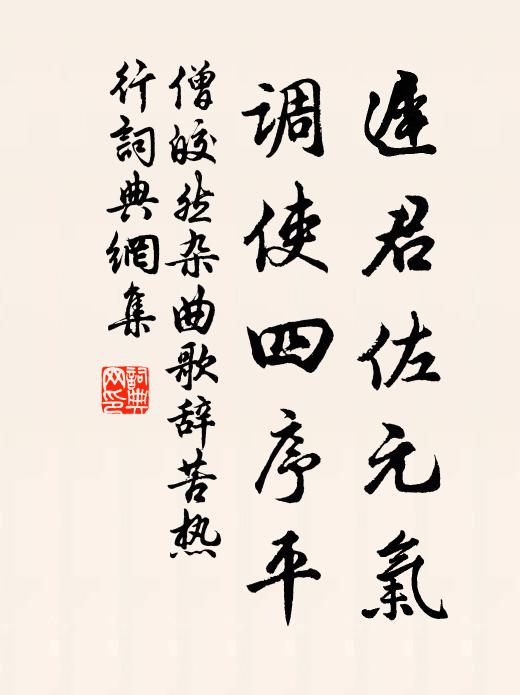 遲君佐元氣
调使四序平
僧皎然杂曲歌辞苦热
行詞典網集
詞典
网印